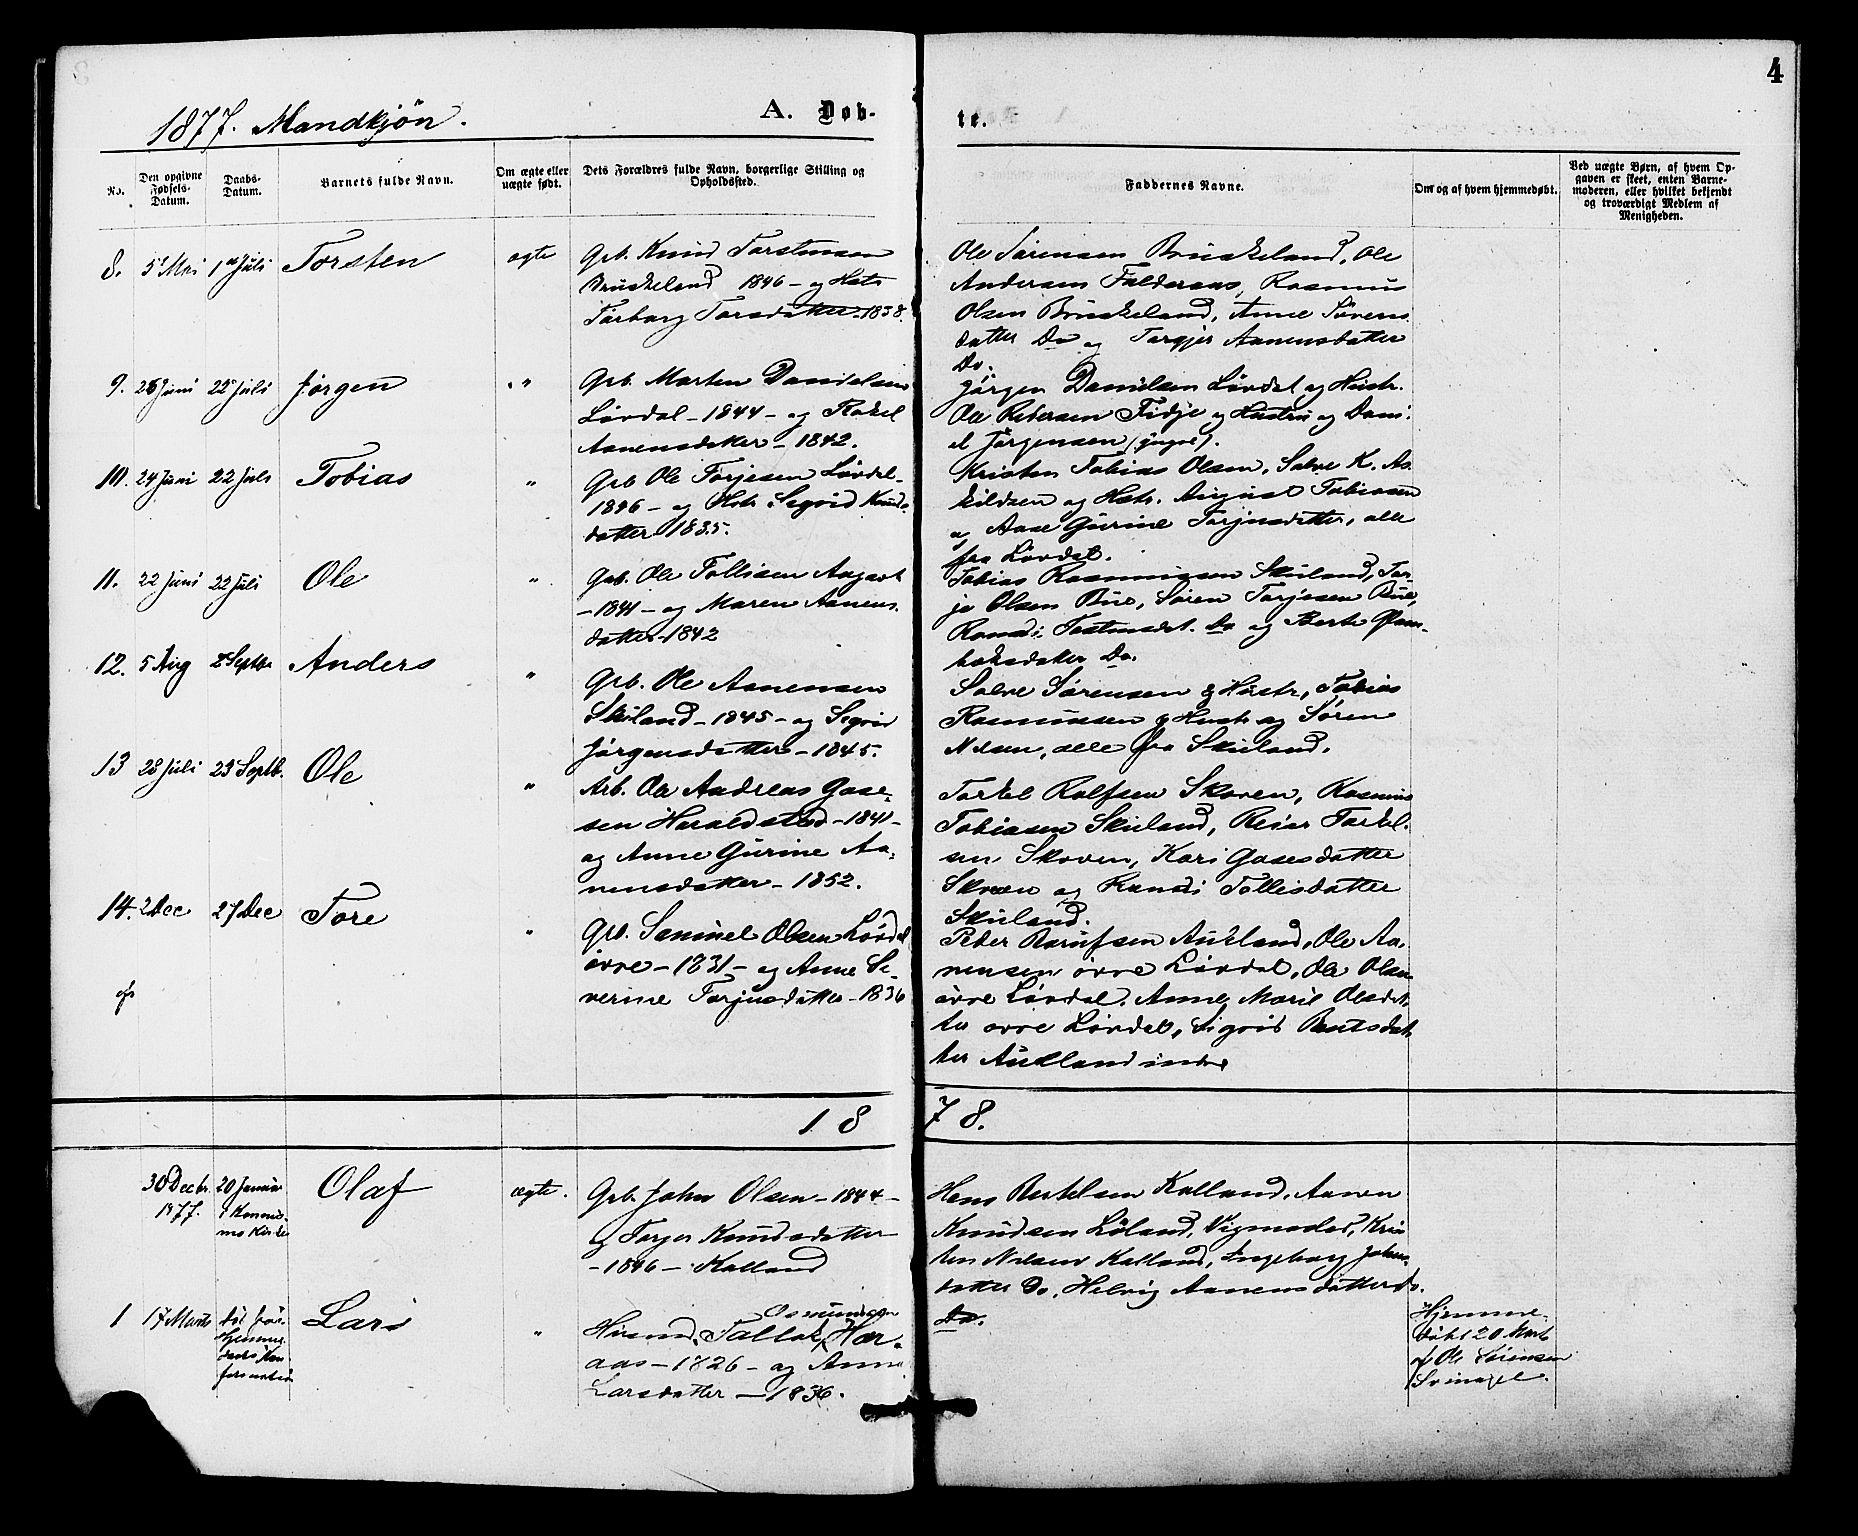 4
1877. Mandkjön.
A. Døb-
te.
No.
Den opgivne Fødsels-Datum.
Daabs-Datum.
Barnets fulde Navn.
Om ægte eller uægte født.
Dets Forældres fulde Navn, borgerlige Stilling og Opholdssted.
Faddernes Navne.
Om og af hvem hjemmedøbt.
Ved uægte Børn, af hvem Op-
gaven er skeet, enten Barne-
moderen, eller hvilket bekjendt
og troværdigt Medlem af
Menigheden.
8. 5 Mai 1 Juli Torsten ægte Grb. Knud Torstensen
Bruskeland 1846 - og Hstr
Torborg Torsdatter - 1838.
Ole Sørensen Bruskeland, Ole
Andersen Falderaas, Rasmus
Olsen Bruskeland, Anne Sørens
datter Do og Torgjer Aanensdatter
Do.
9. 26 Juni 22 Juli Jørgen " Grb. Morten Danielsen
Løvdal - 1844 - og Rakel
Aanensdatter - 1842.
Jørgen Danielsen Løvdal og Hustr.
Ole Pedersen Fidje og Hustru og Dani-
el Jørgensen (yngre).
10. 24 Juni 22 Juli Tobias " Grb Ole Torjesen Løvdal -
1846 - og Hstr. Segrid Knuds-
datter 1835.
Kristen Tobias Olsen, Salve K. As-
kildsen og Hstr. August Tobiasen
og Aase Gurine Torjusdatter, alle
fra Løvdal.
11. 22 Juni 22 Juli Ole " Grb. Ole Tollisen
- 1841 - og Maren Aanens-
datter - 1842
Tobias Rasmussen Skuland, Tor-
je Olsen Bue, Søren Torjesen Bue,
Do og Berte
Do.
12. 5 Aug 2 Septbr Anders " Grb. Ole Aanensen
Skuland - 1845 - og Segrid
Jørgensdatter - 1845.
Salve Sørensen & Hustr, Tobias
Rasmussen & Hustr og Søren
Nilsen, alle fra Skuland.
13 28 Juli 23 Septb. Ole " Arb. Ole Andreas Gose-
sen Haraldstad - 1841 -
og Anne Gurine Aa-
nensdatter - 1852.
Torkel Rolfsen Skoven, Rasmus
Tobiasen Skuland, Reiar Torkel-
sen Skoven, Kari Gosesdatter
Skoven og Randi Tollisdatter
Skuland.
14. 2 Dec 27 Dec Tore " Grb. Samuel Olsen Løvdal
øvre - 1831 - og Anne Se-
verine Torjusdatter - 1836
Peder Aukland, Ole Aa-
nensen øvre Løvdal, Ole Olsen
øvre Løvdal, Anne Marie Olsdat-
ter øvre Løvdal, Sigrid Bentsdat-
ter Aukland indre
1 8 7 8.
30 Decbr 1877. 20 Januar Olaf ægte. Grb. John Olsen - 1844 -
og Torjer Knudsdatter
- 1846 - Kalland
Hans Bertelsen Kalland, Aanen
Knudsen Løland, Vigmostad, Kris-
ten Nilsen Kalland, Ingeborg Johns-
datter Do, Helvig Aanensdatter Do.
Do.
1 17 Marts død før Hjemme-
daabs Kon-
firmation
Lars " Husmd. Tallak Osmundsen Hær-
aas - 1826 - og Anne
Larsdatter - 1836.
Hjemme-
døbt 20 Marts
af Ole Sørensen
Svinagel.